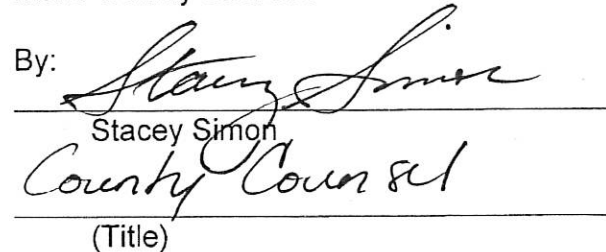 By: Stacey Simon
Stacey Simon
County Counsel
(Title)